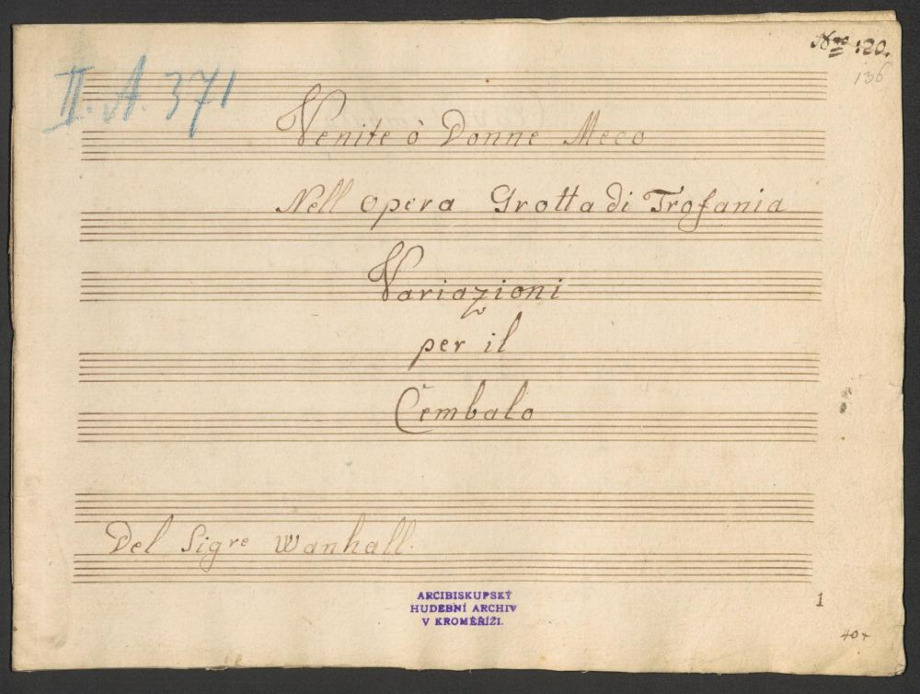 Nro 120.
136
II. A. 371
Venite ò Donne Meco
Nell opera Grotta di Trofania
Variazioni
per il
Cembalo
Del Sigre Wanhall.
ARCIBISKUPSKÝ
HUDEBNÍ ARCHIV
V KROMĚŘÍŽI.
1